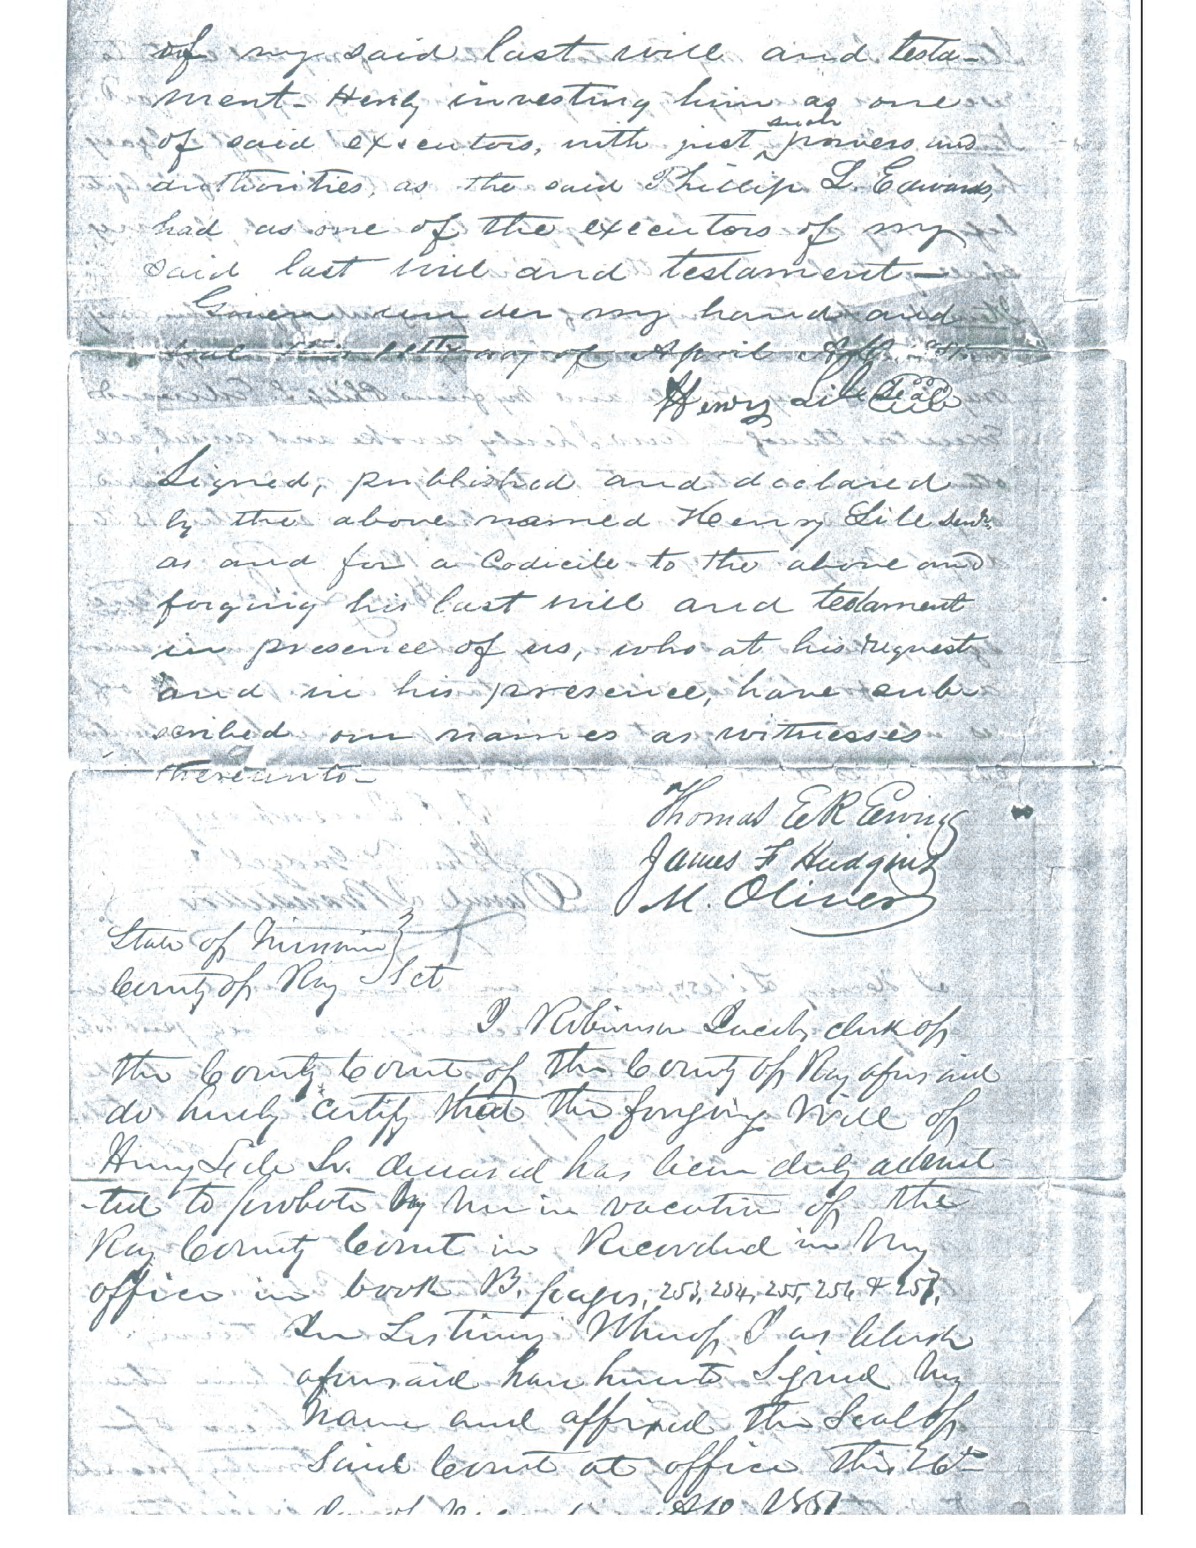 of my said last will and testa-
ment - Herby investing him as one
of said executors, with just such powers and
authorities, as the said Phillip L. Edwards,
had as one of the executors of my
said last will and testament -
Given under my hand and
seal this day of April A.D.
Henry Lile Seal
Signed, published and declared
by the above named Henry Lile Senr.
as and for a Codicile to the above and
forging his last will and testament
in presence of us, who at his request
and in his presence, have sub
scribed our names as witnesses
thereunto -
Thomas E R Ewing
James F Hudgins
M. Oliver
State of Missouri }
County of Ray } Sct
I Robinson clerk of
the County Court of the County of Ray aforesaid
do hereby certify that the forgoing Will of
Henry Lile Sr. deceased has been duly admit
-ted to probate by me in vacation of the
Ray County Court in Recorded in my
office in book B. pages, 253, 254, 255, 256, & 257.
In Testimony Whereof I as Clerk
aforesaid have hereunto Signed my
name and affixed the Seal of
Said Court at office this 26th
day of AD. 1851